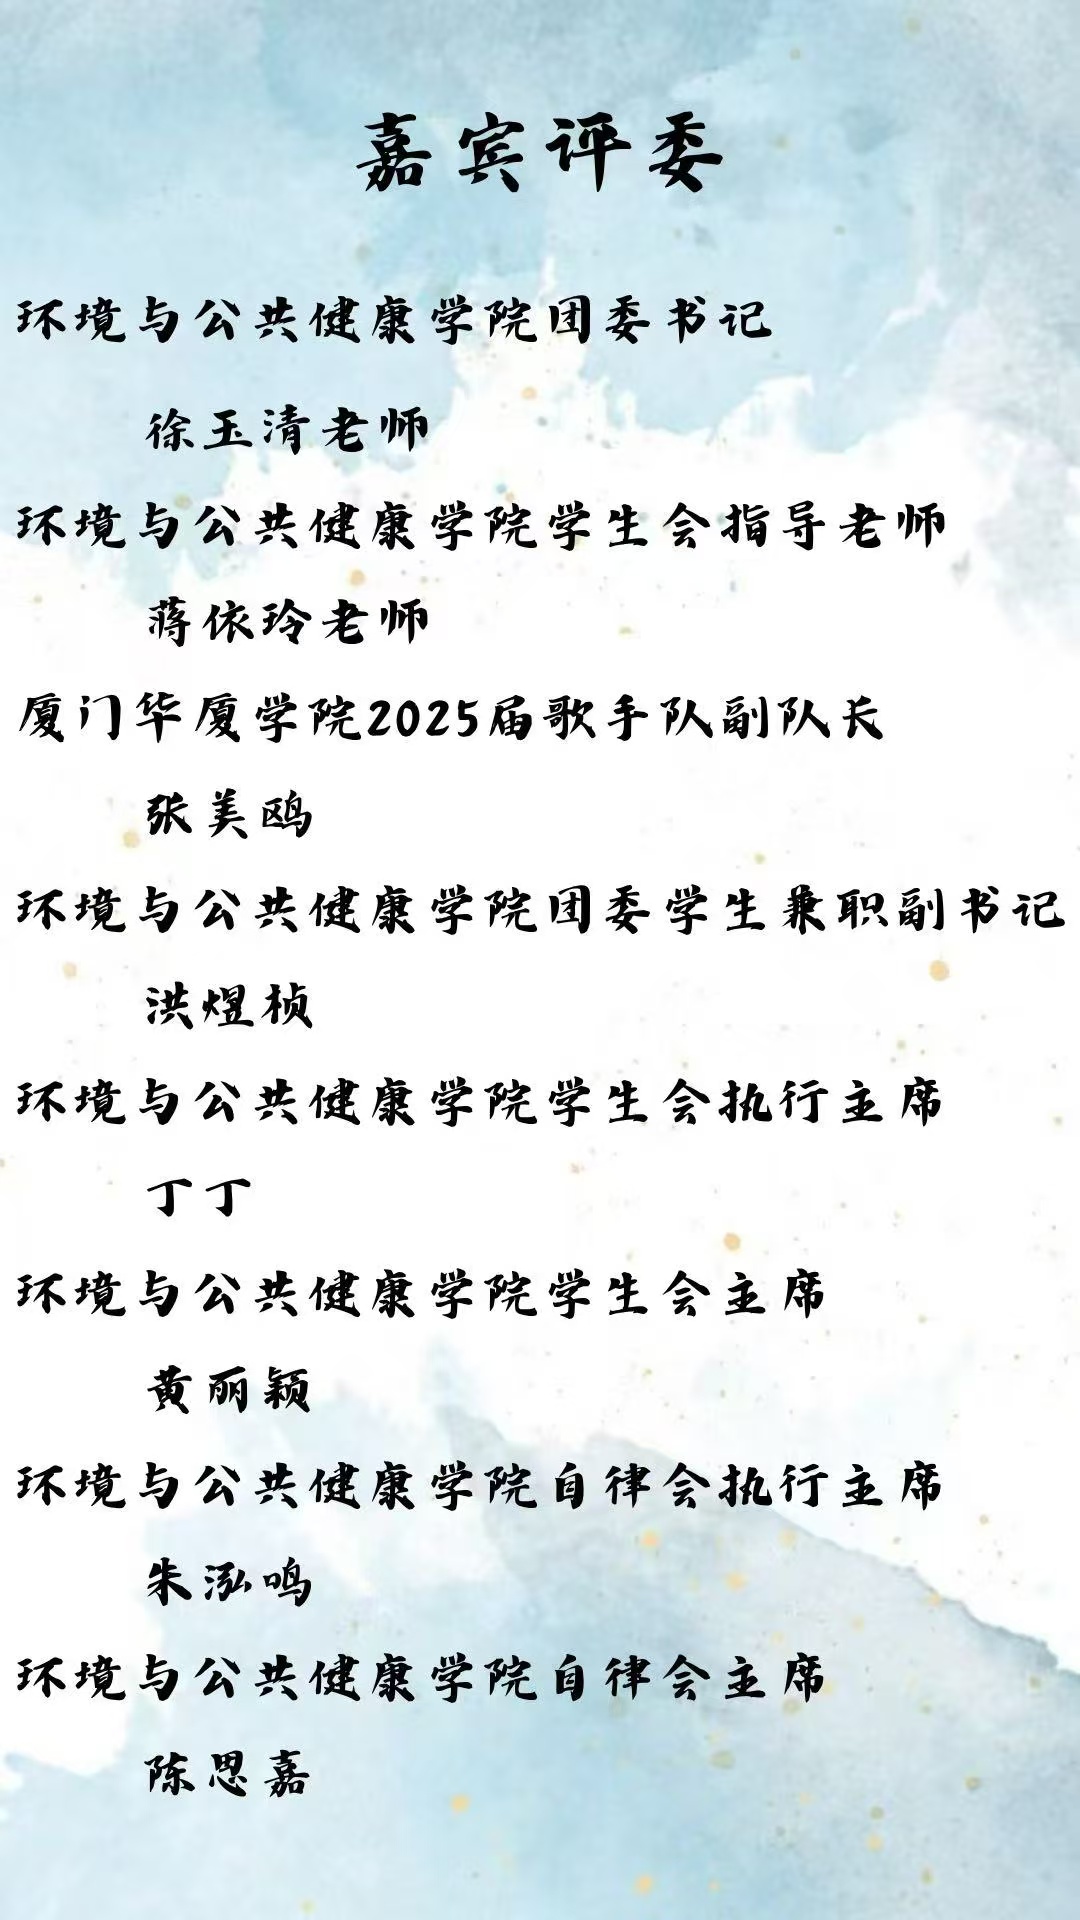 嘉宾评委
环境与公共健康学院团委书记
徐玉清老师
环境与公共健康学院学生会指导老师
蒋依玲老师
厦门华厦学院2025届歌手队副队长
张美鸥
环境与公共健康学院团委学生兼职副书记
洪煜桢
环境与公共健康学院学生会执行主席
丁丁
环境与公共健康学院学生会主席
黄丽颖
环境与公共健康学院自律会执行主席
朱泓鸣
环境与公共健康学院自律会主席
陈思嘉